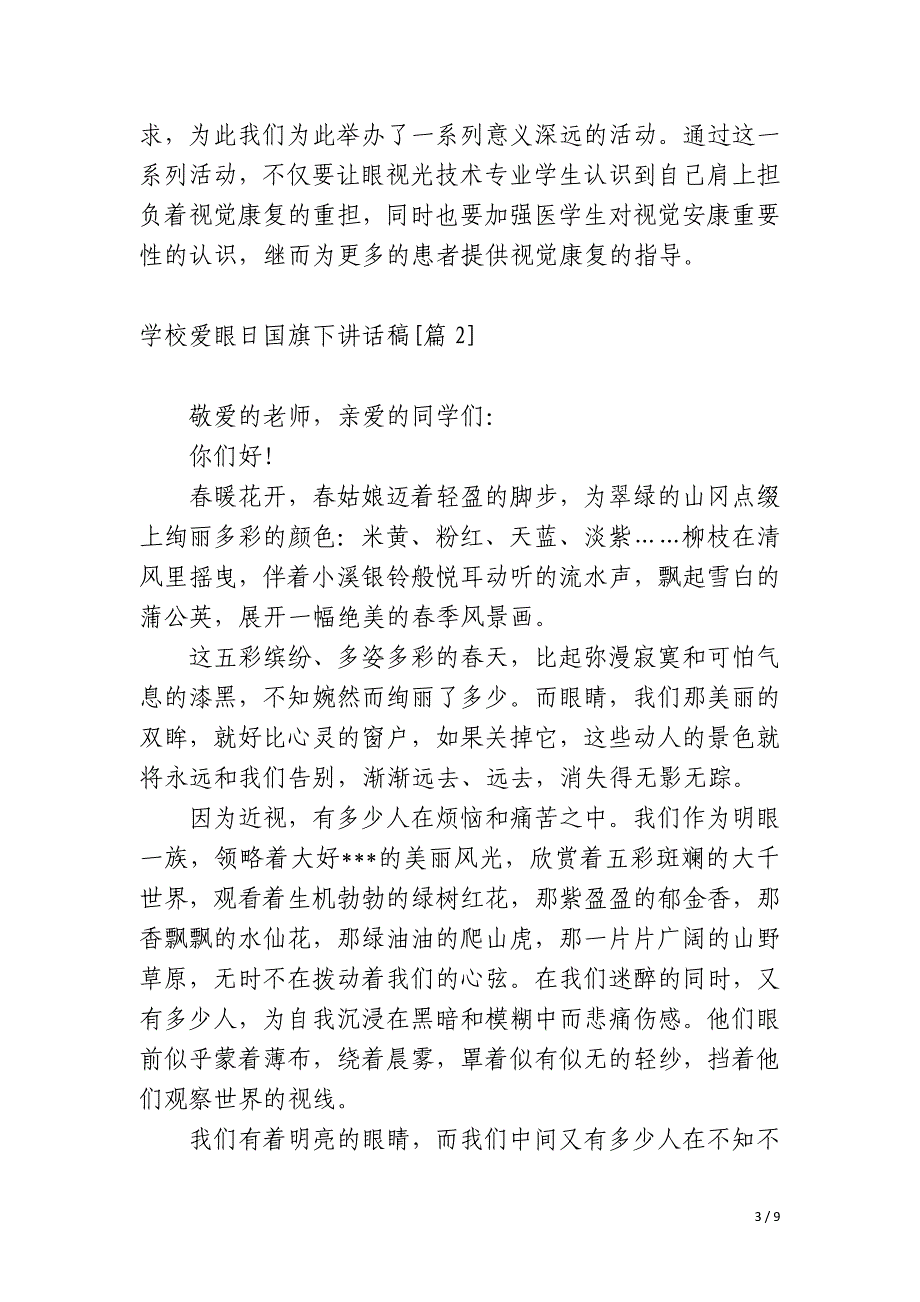 求，为此我们为此举办了一系列意义深远的活动。通过这一
系列活动，不仅要让眼视光技术专业学生认识到自己肩上担
负着视觉康复的重担，同时也要加强医学生对视觉安康重要
性的认识，继而为更多的患者提供视觉康复的指导。
学校爱眼日国旗下讲话稿[篇2]
敬爱的老师，亲爱的同学们：
你们好！
春暖花开，春姑娘迈着轻盈的脚步，为翠绿的山冈点缀
上绚丽多彩的颜色：米黄、粉红、天蓝、淡紫……柳枝在清
风里摇曳，伴着小溪银铃般悦耳动听的流水声，飘起雪白的
蒲公英，展开一幅绝美的春季风景画。
这五彩缤纷、多姿多彩的春天，比起弥漫寂寞和可怕气
息的漆黑，不知婉然而绚丽了多少。而眼睛，我们那美丽的
双眸，就好比心灵的窗户，如果关掉它，这些动人的景色就
将永远和我们告别，渐渐远去、远去，消失得无影无踪。
因为近视，有多少人在烦恼和痛苦之中。我们作为明眼
一族，领略着大好***的美丽风光，欣赏着五彩斑斓的大千
世界，观看着生机勃勃的绿树红花，那紫盈盈的郁金香，那
香飘飘的水仙花，那绿油油的爬山虎，那一片片广阔的山野
草原，无时不在拨动着我们的心弦。在我们迷醉的同时，又
有多少人，为自我沉浸在黑暗和模糊中而悲痛伤感。他们眼
前似乎蒙着薄布，绕着晨雾，罩着似有似无的轻纱，挡着他
们观察世界的视线。
我们有着明亮的眼睛，而我们中间又有多少人在不知不
3 / 9